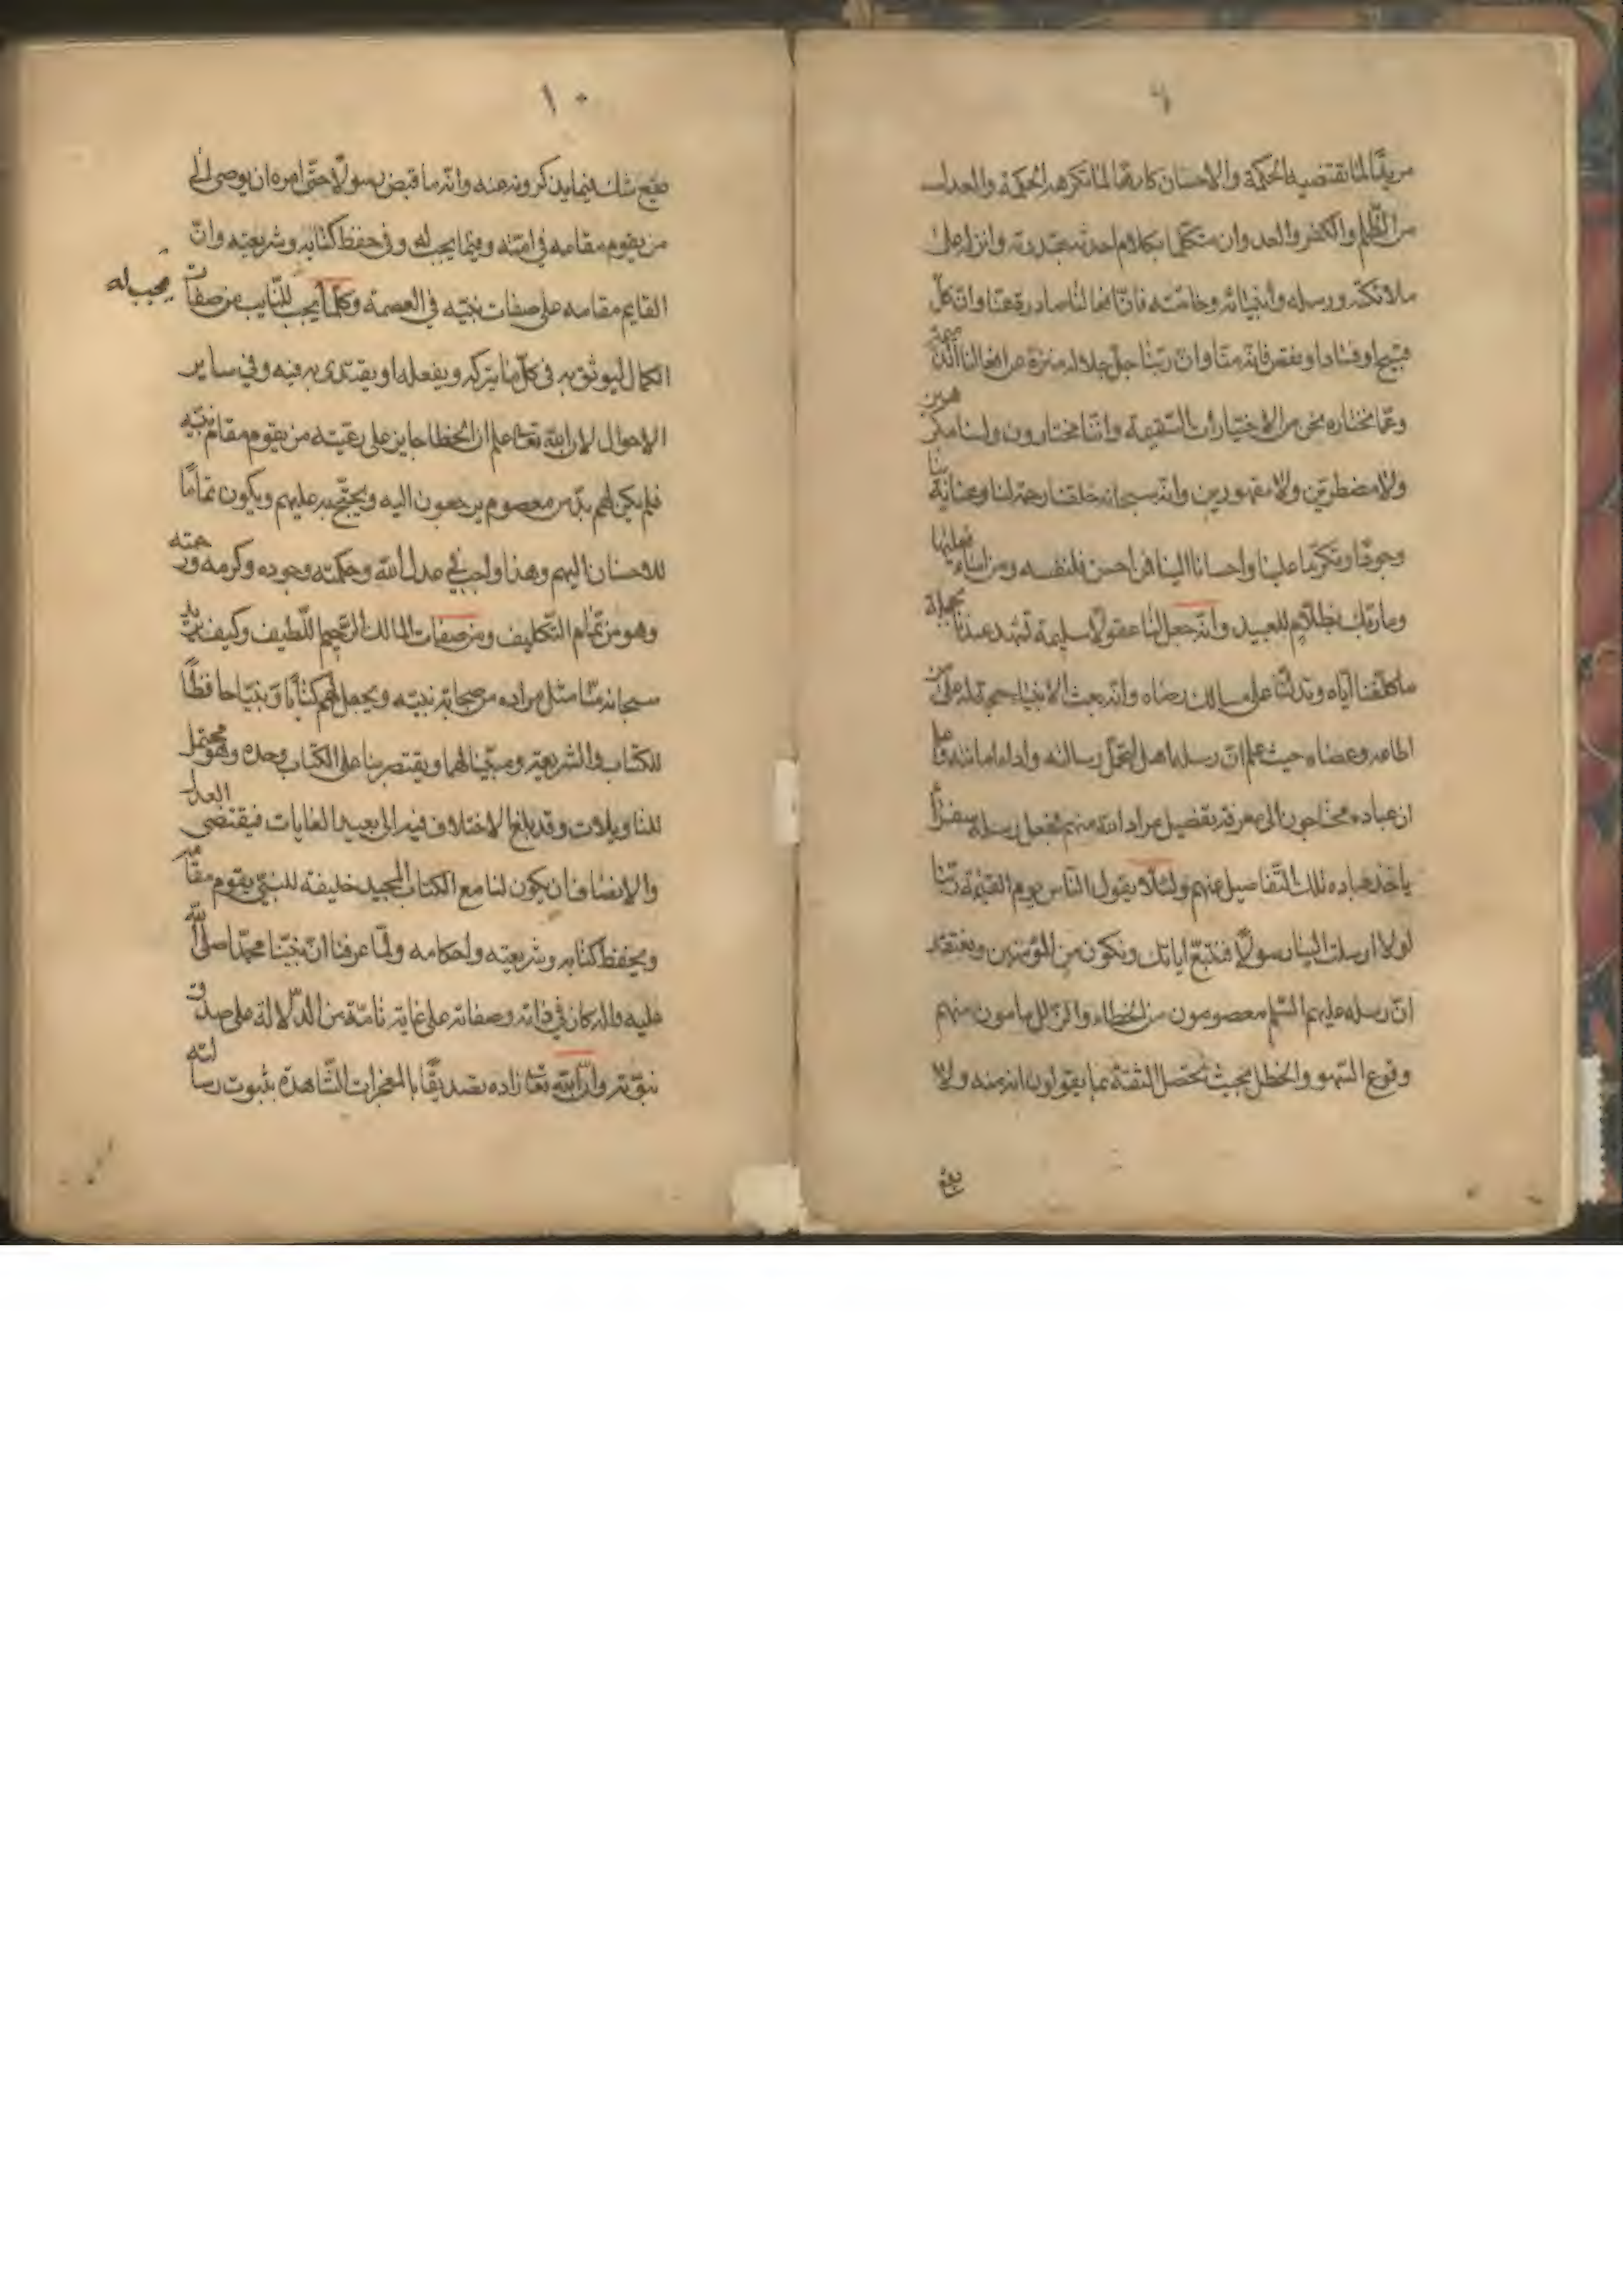 ٩
مريدًا لما تقتضيه الحكمة والاحسان كارها لما تكرهه الحكمة والعدل
من الظلم والكفر والعدوان متكلما بكلام احدثه بقدرته وانزله على
ملائكته ورسله وأنبيائه وخاصته فان افعالنا صادرة عنا وان كل
قبيح او فساد او نقص فانه منا وان ربنا جل جلاله منزه عن افعالنا الذميمة
وعما نختاره نحن من الاختيارات السقيمة واننا مختارون ولسنا مكرهين
ولا مضطرين ولا مقهورين وانه سبحانه خلقنا رحمة لنا وعناية بنا
وجودًا وتكرّما علينا واحسانا الينا فمن احسن فلنفسه ومن اساء فعليها
وما ربك بظلّام للعبيد وانه جعل لنا عقولا سليمة تشهد عندنا بجملة
ما كلفنا اياه وتدلنا على مسالك رضاه وانه بعث الانبياء حجة له على من
اطاعه وعصاه حيث علم ان رسله اهل لتحمل رسالته واداء امانته وعلم
ان عباده محتاجون الى معرفة تفصيل مراد الله منهم فجعل رسله سفراءً
ياخذ عباده تلك التفاصيل عنهم ولئلا يقول الناس يوم القيمة ربنا
لولا ارسلت الينا رسولًا فنتبع اياتك ونكون من المؤمنين ونعتقد
ان رسله عليهم السّلم معصومون من الخطاء والزلل مامون منهم
وقوع السّهو والخطل بحيث تحصل الثقة بما يقولون انه منه ولا
يقع
١٠
يقع شك فيما يذكرونه عنه وانه ما قبض رسولًا حتى امره ان يوصى الى
من يقوم مقامه في امته وفيما يجب له وفي حفظ كتابه وشريعته وانّ
القايم مقامه على صفات نبيّه في العصمة وكلما يجب للنايب من صفات
يجب له
الكمال ليوثق به في كل ما يتركه ويفعله او يقتدى به فيه وفي ساير
الاحوال لان الله تعا علم ان الخطا جايز على رعيته من يقوم مقام نبيّه
فلم يكن لهم بدّ من معصوم يرجعون اليه ويحتج به عليهم ويكون تمامًا
للاحسان اليهم وهذا واجب في عدل الله وحكمته وجوده وكرمه ورحمته
وهو من تمام التكليف ومن صفات المالك الرحيم اللطيف وكيف يريد
سبحانه منا مثل مراده من صحابة نبيّه ويجعل لهم كتابًا ونبيّا حافظًا
للكتاب والشريعة ومبيّنا لهما ويقتصر بنا على الكتاب وحده وهو محتمل
للتاويلات وقد بلغ الاختلاف فيه الى بعيد الغايات فيقتضى العدل
والانصاف ان يكون لنا مع الكتاب المجيد خليفة للنبيّ يقوم مقامه
ويحفظ كتابه وشريعته واحكامه ولمّا عرفنا انّ نبيّنا محمّدا صلى الله
عليه واله كان في ذاته وصفاته على غاية تامّة من الدّلالة على صدق
نبوّته وان الله تعا زاده تصديقًا بالمعجزات الشّاهدة بثبوت رسالته